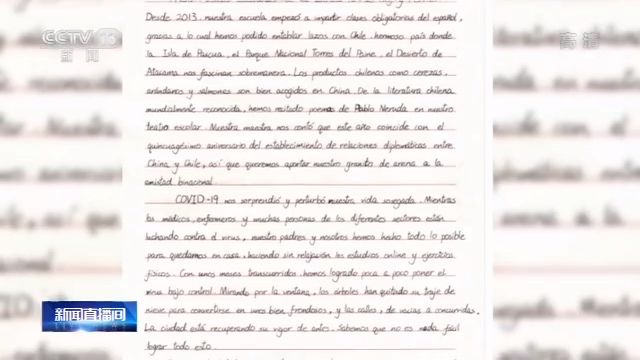 CCTV 13
新闻
高清
Desde 2013, nuestra escuela empezó a impartir clases obligatorias del español,
gracias a lo cual hemos podido entablar lazos con Chile, hermoso país donde
la Isla de Pascua, el Parque Nacional Torres del Paine, el Desierto de
Atacama nos fascinan sobremanera. Los productos chilenos como cerezas,
arándanos y salmones son bien acogidos en China. De la literatura chilena
mundialmente reconocida, hemos recitado poemas de Pablo Neruda en nuestro
teatro escolar. Nuestra maestra nos contó que este año coincide con el
quincuagésimo aniversario del establecimiento de relaciones diplomáticas entre
China y Chile, así que queremos aportar nuestro granito de arena a la
amistad binacional.
COVID-19 nos sorprendió y perturbó nuestra vida sosegada. Mientras
los médicos, enfermeros y muchas personas de los diferentes sectores están
luchando contra el virus, nuestro padres y nosotros hemos hecho todo lo posible
para quedarnos en casa, haciendo sin relajación los estudios online y ejercicios
físicos. Con unos meses transcurridos, hemos logrado poco a poco poner el
virus bajo control. Mirando por la ventana, los árboles han quitado su traje de
nieve para convertirse en unos bien frondosos, y las calles, de vacías a concurridas.
La ciudad está recuperando su vigor de antes. Sabemos que no es nada fácil
lograr todo esto.
新闻直播间